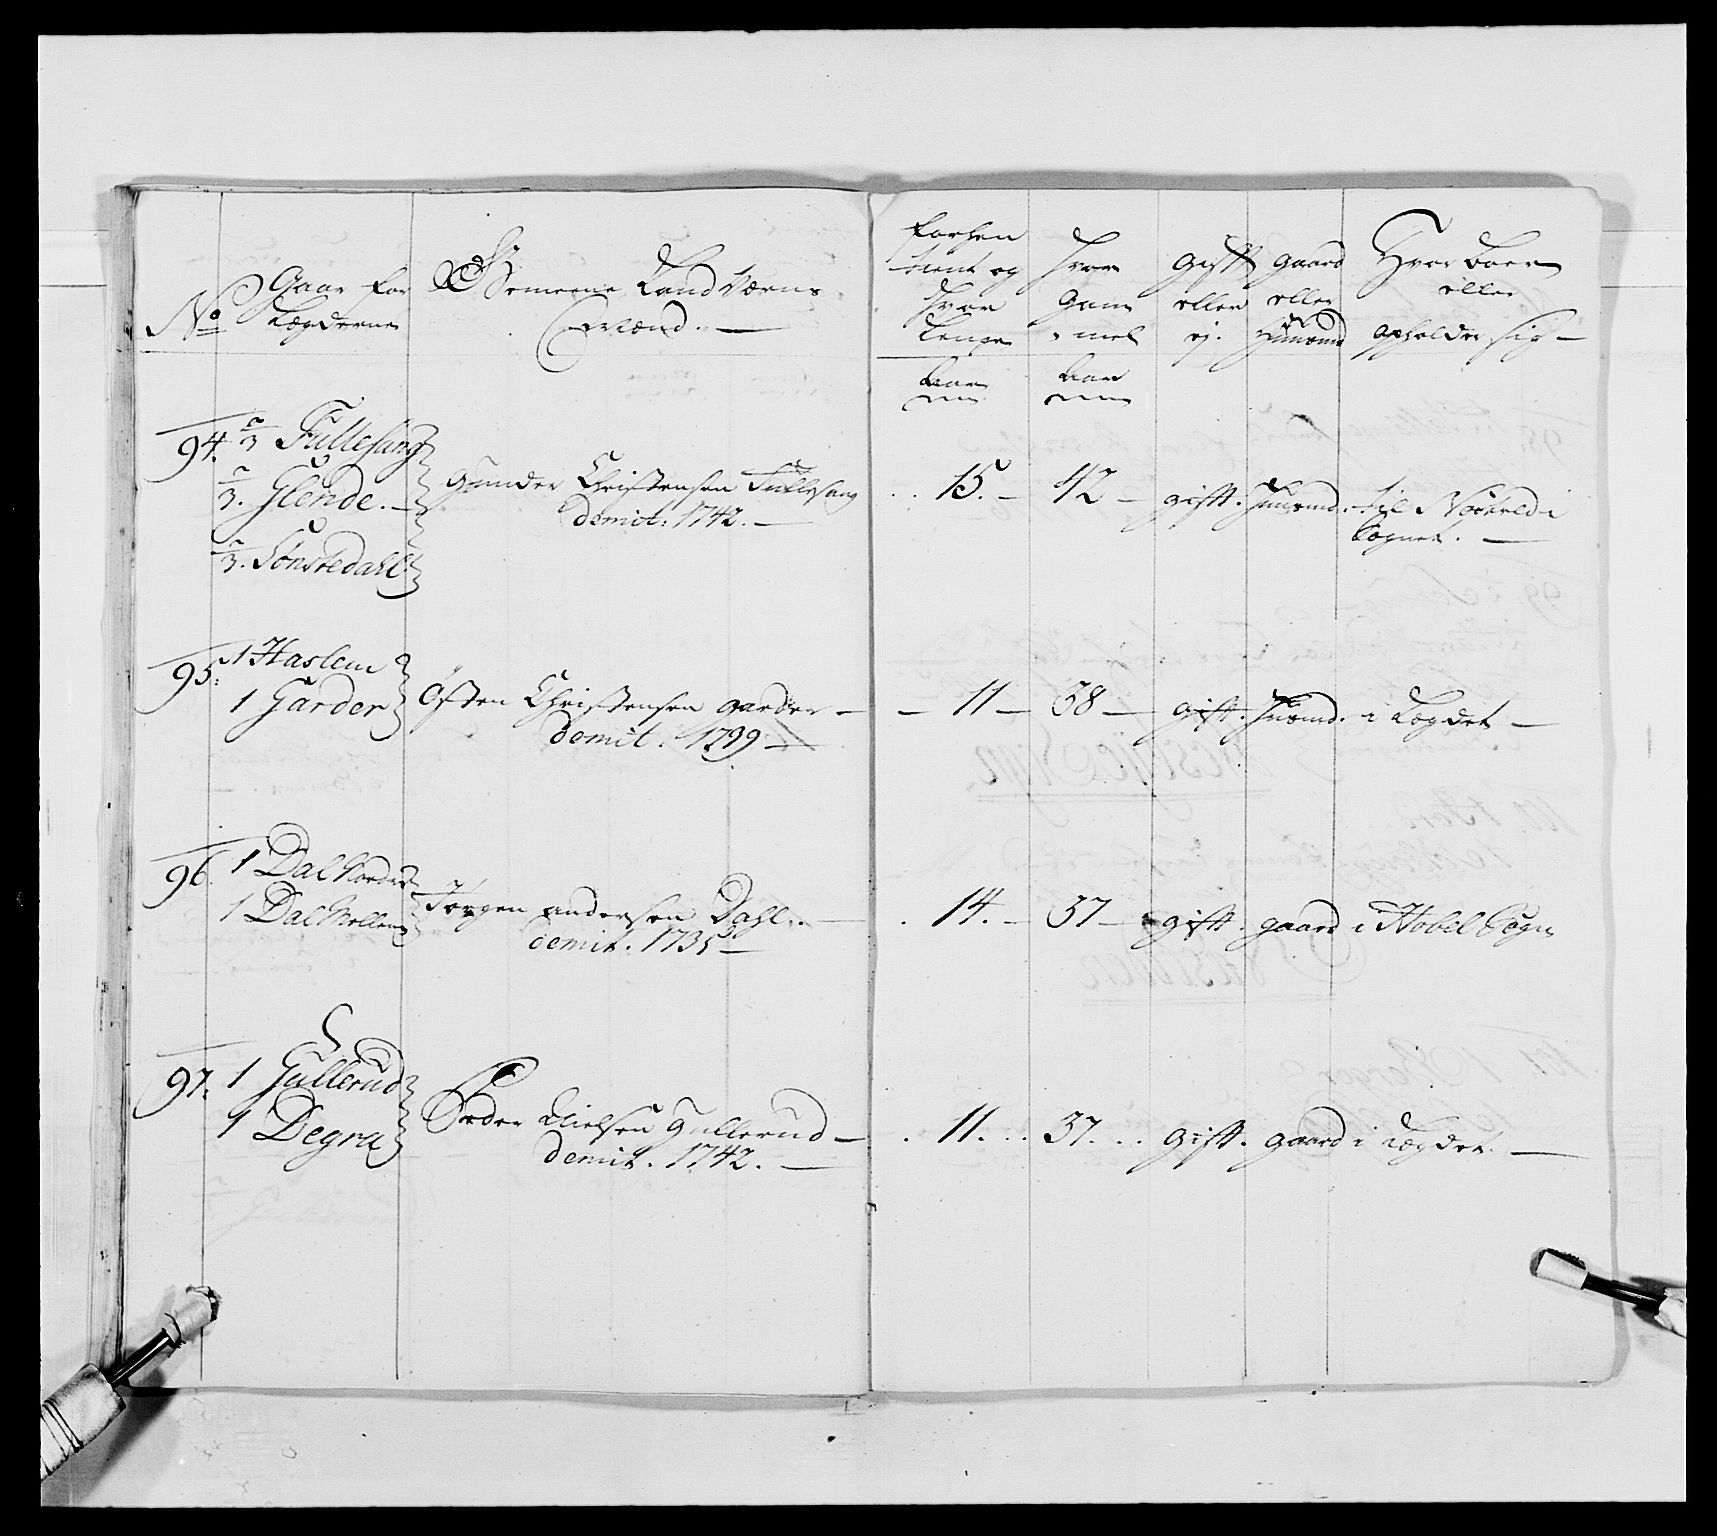 No
Gaar for
Lægderne
Gemeene Land Værns
Mænd.
forhen
tient og
hvor
lenge
hvor
Gam
mel
gift
eller
ej.
gaard
eller
Huusmd
Hvor boer
eller
opholder sig
Aar
Aar
94. 2/3 Fullesang
2/3. Glende.
2/3. Sonstedahl
Gunder Christensen Fullesang
demit: 1742.
15. 42 gift. Huusmd. til
Sognet.
95. 1 Haslem
1 Garder
Østen Christensen Garder
demit. 1739
11 38 gift. Huusmd. i Lægdet
96. 1 Dal Nordre
1 Dal Mellem
Jørgen Andersen Dahl.
demit. 1735
14. 37 gift. gaard i Hobel Sogn
97. 1 Gullerud
1 Degra
Peder Nielsen Gullerud
demit. 1742.
11. 37. gift. gaard i Lægdet.